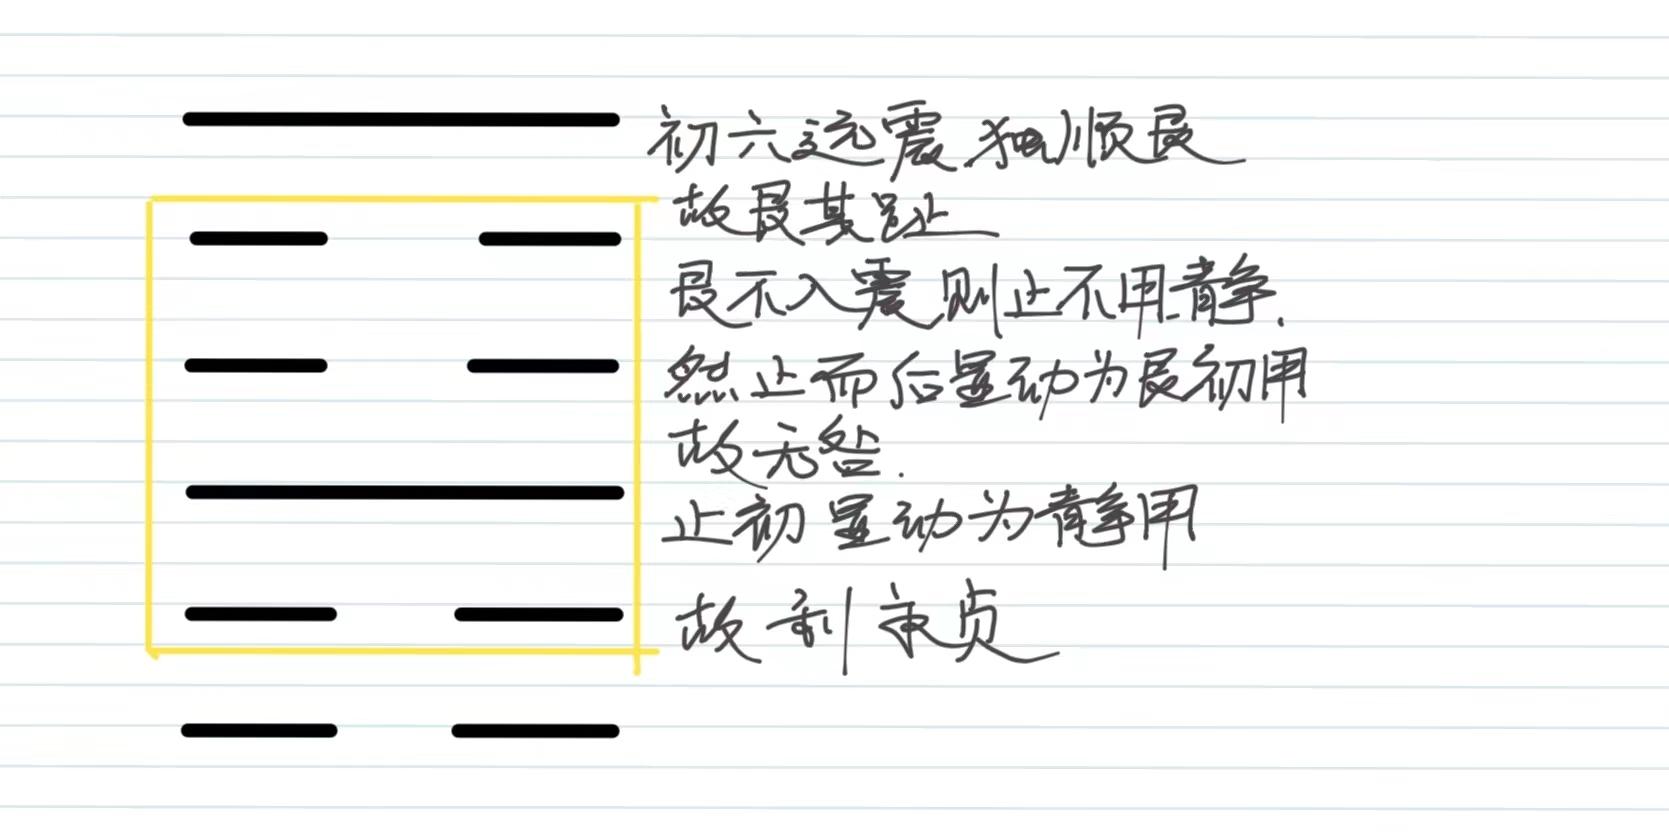 初六远震独顺艮
故艮其趾
艮不入震则止不用静.
然止而后显动为艮初用
故无咎.
止初显动为静用
故利永贞